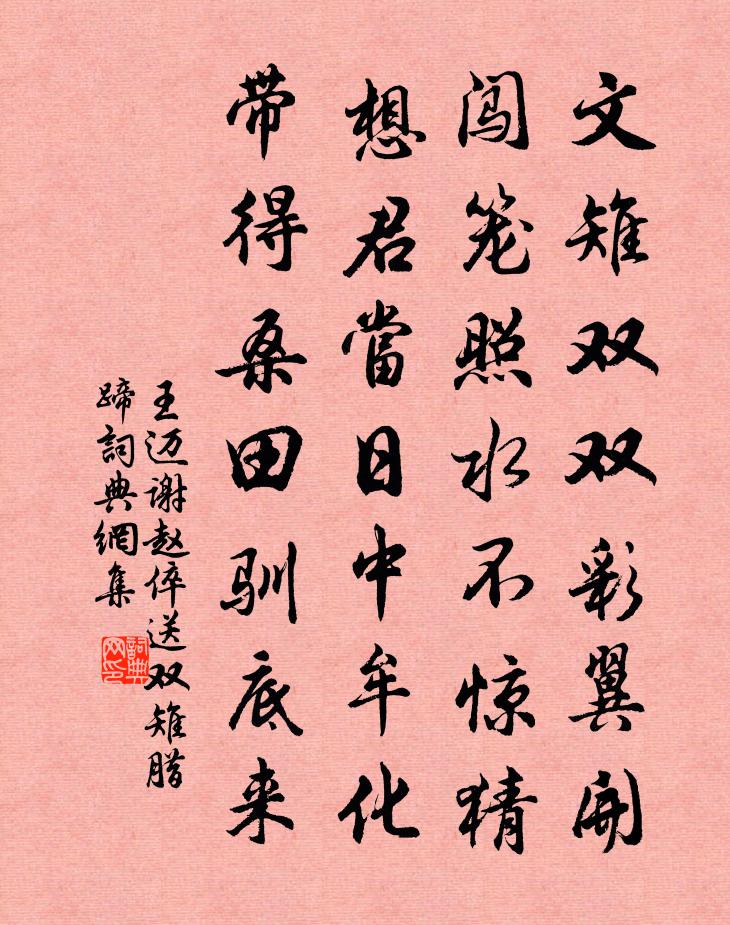 文雉双双彩翼开
闯笼照水不惊猜
想君當日中牟化
带得桑田驯底来
王迈谢赵倅送双雉腊
蹄詞典網集
詞典网印